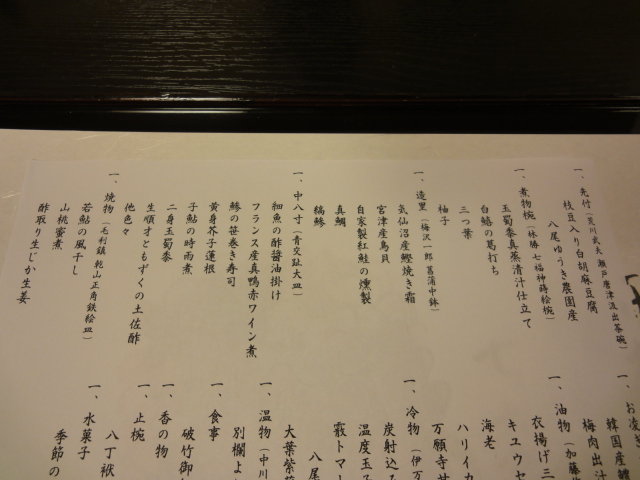 一、先付（荒川武夫 瀬戸唐津汲出茶碗）
枝豆入り白胡麻豆腐
八尾ゆうき農園産
一、煮物椀（林勝 七福神蒔絵椀）
玉蜀黍真蒸清汁仕立て
白鱚の葛打ち
三つ葉
柚子
一、造里（梅沢一郎 菖蒲中鉢）
気仙沼産鰹焼き霜
宮津産鳥貝
自家製紅鮭の燻製
真鯛
縞鯵
一、中八寸（青交趾大皿）
細魚の酢醤油掛け
フランス産真鴨赤ワイン煮
鯵の笹巻き寿司
黄身芥子蓮根
子鮎の時雨煮
二身玉蜀黍
生順才ともずくの土佐酢
他色々
一、焼物（毛利鎮 乾山正角鉄絵皿）
若鮎の風干し
山桃蜜煮
酢取り生じか生姜
一、お凌ぎ
韓国産鱧
梅肉出汁
一、油物（加藤
衣揚げ三
キユウセ
海老
ハリイカ
万願寺甘
一、冷物（伊万
炭射込
温度玉子
霰トマト
八尾
大葉紫蘇
一、温物（中川
別欄よ
一、食事
破竹御
一、香の物
一、止椀
八丁袱
一、水菓子
季節の